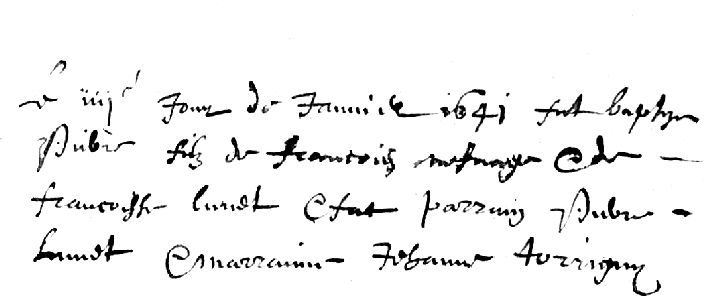 Le iiij^e Jour de Janvier 1641 fut baptize
Pierre filz de francois mesnage & de
francoise lunet & fut parrain Pierre
lunet & marraine Jehanne torrigny